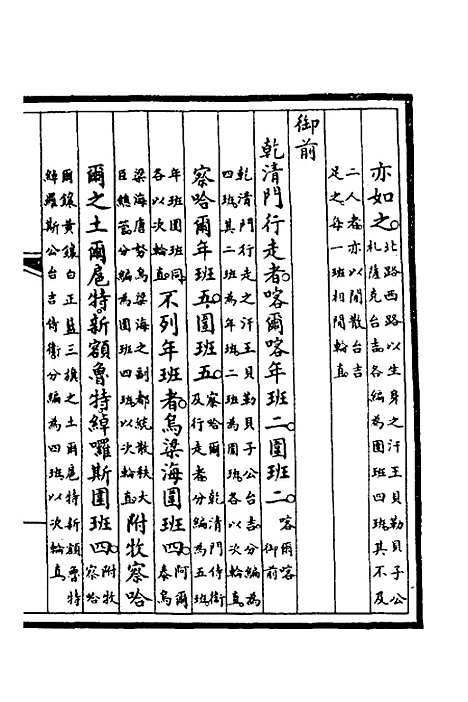 亦如之。北路西路以生身之汗王貝勒貝子公
札薩克台吉各編為圍班四班其不及
二人者亦以閒散台吉
足之每一班相間輪直
御前
乾清門行走者。喀爾喀年班二。圍班二。喀爾喀
御前
乾清門行走之汗王貝勒貝子公台吉分編為
四班其二班為年班二班為圍班各以次輪直
察哈爾年班五。圍班五。察哈爾乾清門侍衛
及行走者分編為五班
年班圍班同
各以次輪直
不列年班者。烏梁海圍班四。阿爾
泰烏
梁海唐努烏梁海之副都統散秩大
臣總管分編為圍班四班以次輪直
附牧察哈
爾之土爾扈特。新額魯特綽囉斯圍班四。附牧
察哈
爾鑲黃鑲白正藍三旗之土爾扈特新額魯特
綽羅斯公台吉侍衛分編為四班以次輪直